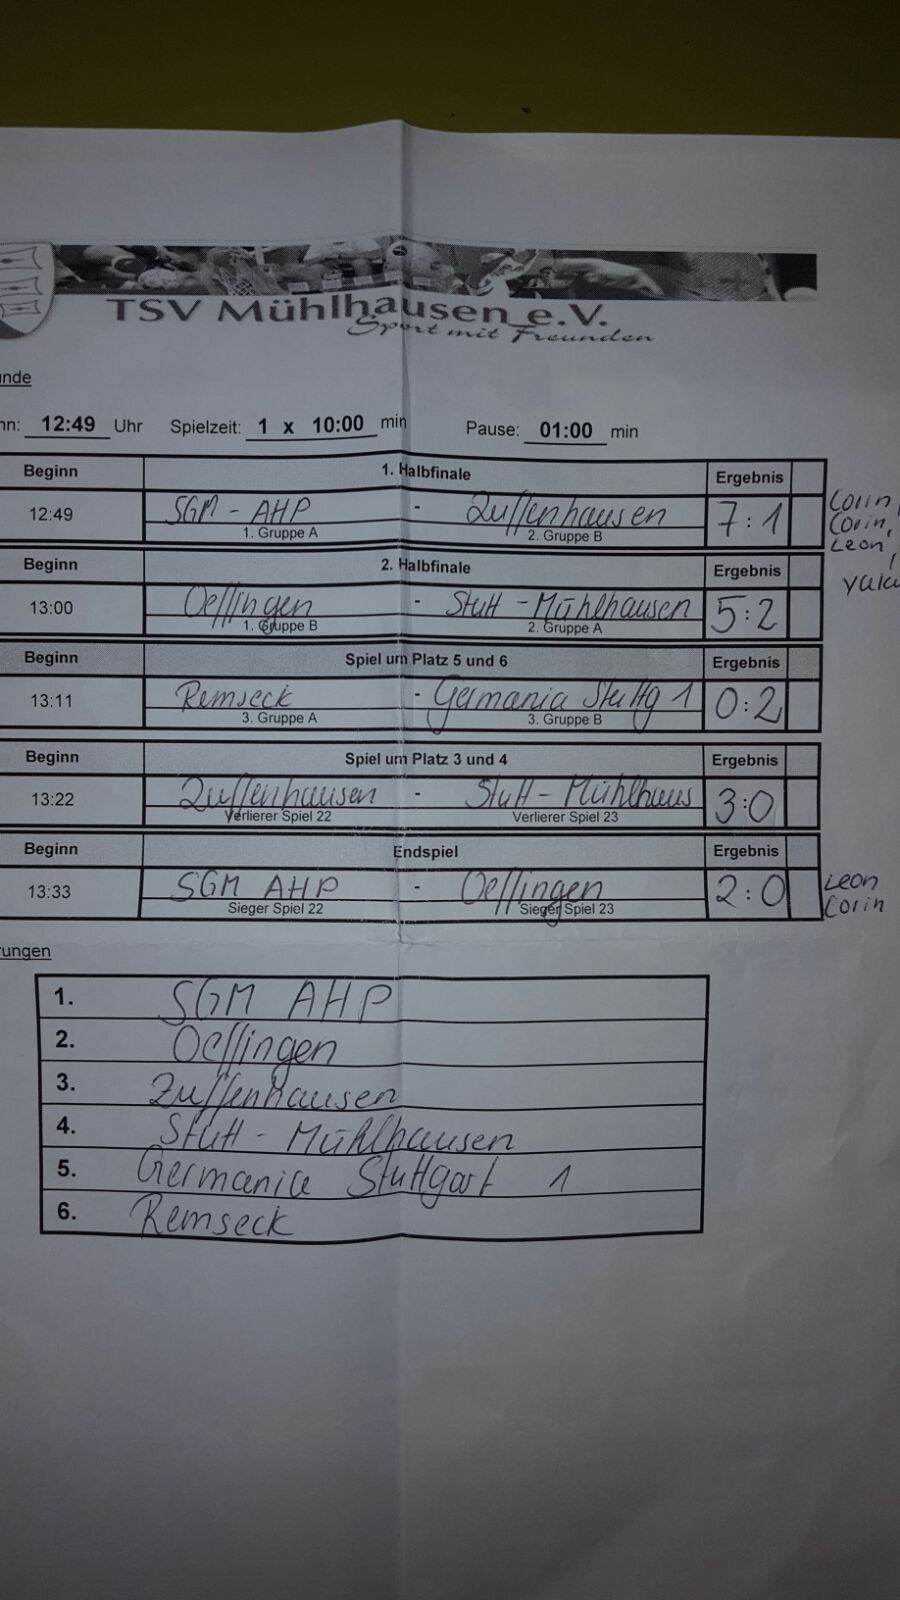 TSV Mühlhausen e.V.
Sport mit Freunden
unde
nn: 12:49 Uhr Spielzeit: 1 x 10:00 min Pause: 01:00 min
Beginn 1. Halbfinale Ergebnis
12:49 SGM - AHP - Zuffenhausen 7:1 Corin,
1. Gruppe A 2. Gruppe B Corin,
Leon,
Beginn 2. Halbfinale Ergebnis
13:00 Oeffingen - Stutt - Mühlhausen 5:2
1. Gruppe B 2. Gruppe A
Beginn Spiel um Platz 5 und 6 Ergebnis
13:11 Remseck - Germania Stuttg 1 0:2
3. Gruppe A 3. Gruppe B
Beginn Spiel um Platz 3 und 4 Ergebnis
13:22 Zuffenhausen - Stutt - Mühlhaus 3:0
Verlierer Spiel 22 Verlierer Spiel 23
Beginn Endspiel Ergebnis
13:33 SGM AHP - Oeffingen 2:0 Leon
Sieger Spiel 22 Sieger Spiel 23 Corin
rungen
1. SGM AHP
2. Oeffingen
3. Zuffenhausen
4. Stutt - Mühlhausen
5. Germania Stuttgart 1
6. Remseck